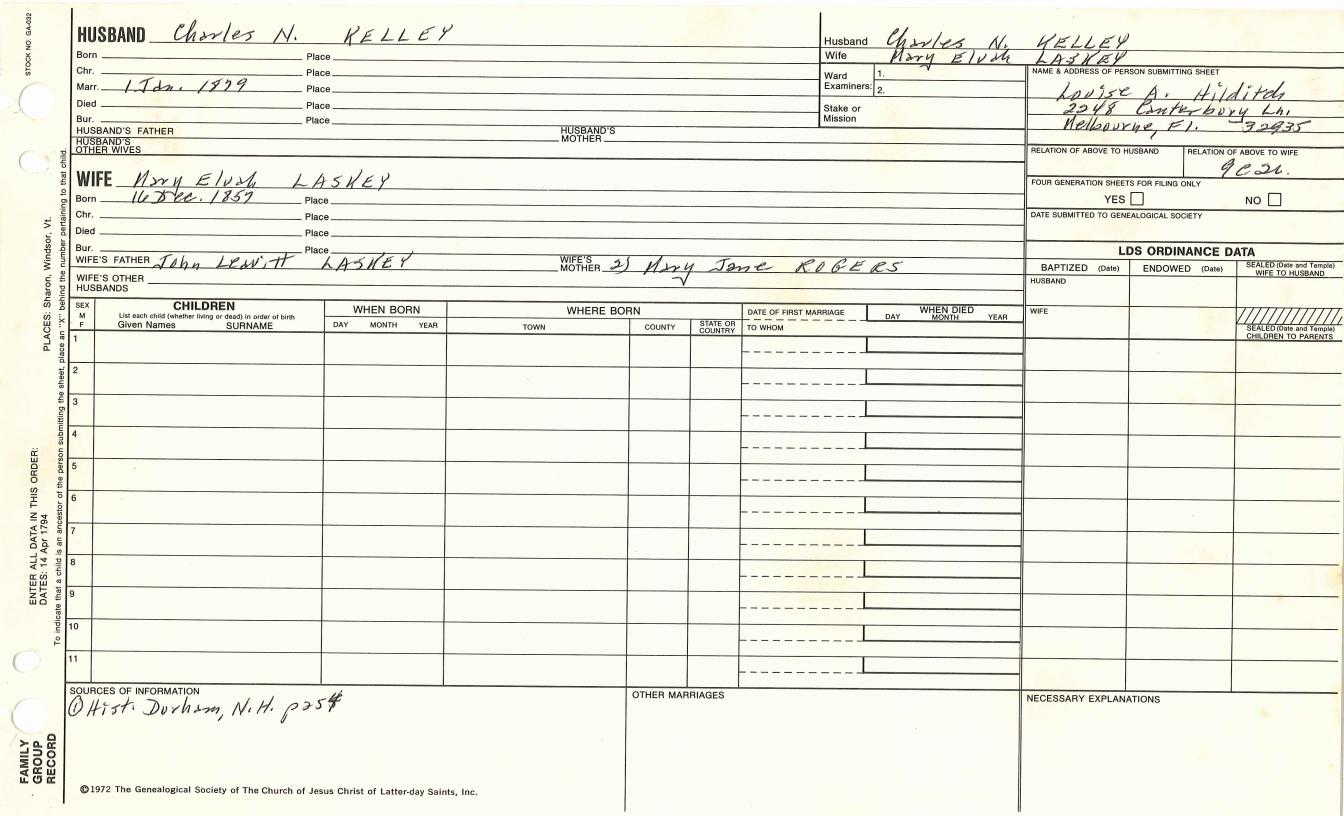 STOCK NO. GA-032
HUSBAND Charles N. KELLEY
Born Place
Chr. Place
Marr. 1 Jan. 1879 Place
Died Place
Bur. Place
HUSBAND'S FATHER HUSBAND'S MOTHER
HUSBAND'S OTHER WIVES
Husband Charles N. KELLEY
Wife Mary Elvah LASKEY
Ward Examiners: 1.
2.
Stake or Mission
NAME & ADDRESS OF PERSON SUBMITTING SHEET
Louise A. Hilditch
2248 Canterbury Ln.
Melbourne, Fl. 32935
RELATION OF ABOVE TO HUSBAND RELATION OF ABOVE TO WIFE
FOUR GENERATION SHEETS FOR FILING ONLY
YES NO
DATE SUBMITTED TO GENEALOGICAL SOCIETY
WIFE Mary Elvah LASKEY
Born 16 Dec. 1857 Place
Chr. Place
Died Place
Bur. Place
WIFE'S FATHER John Leavitt LASKEY WIFE'S MOTHER 2) Mary Jane ROGERS
WIFE'S OTHER HUSBANDS
LDS ORDINANCE DATA
BAPTIZED (Date) ENDOWED (Date) SEALED (Date and Temple) WIFE TO HUSBAND
HUSBAND
WIFE
SEALED (Date and Temple) CHILDREN TO PARENTS
SEX M F
CHILDREN
List each child (whether living or dead) in order of birth
Given Names SURNAME
WHEN BORN
DAY MONTH YEAR
WHERE BORN
TOWN COUNTY STATE OR COUNTRY
DATE OF FIRST MARRIAGE
TO WHOM
WHEN DIED
DAY MONTH YEAR
1
2
3
4
5
6
7
8
9
10
11
SOURCES OF INFORMATION
① Hist. Durham, N.H. p254
OTHER MARRIAGES
NECESSARY EXPLANATIONS
©1972 The Genealogical Society of The Church of Jesus Christ of Latter-day Saints, Inc.
FAMILY GROUP RECORD
ENTER ALL DATA IN THIS ORDER:
DATES: 14 Apr 1794 PLACES: Sharon, Windsor, Vt.
To indicate that a child is an ancestor of the person submitting the sheet, place an "X" behind the number pertaining to that child.